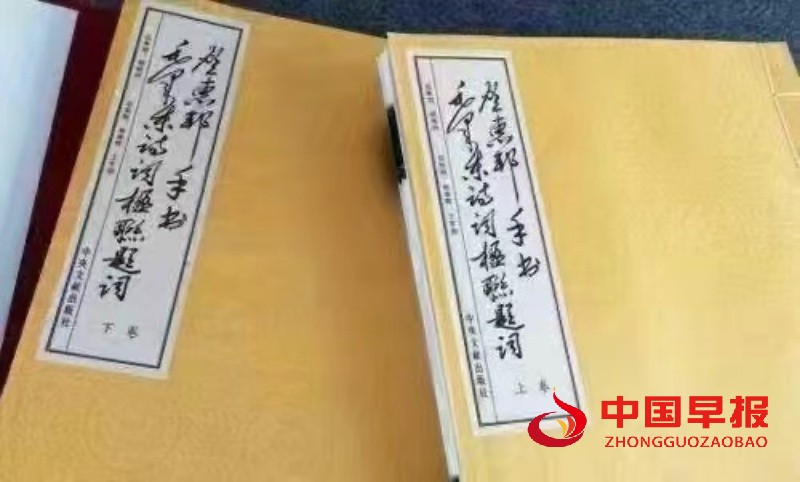 惠邦 手书
毛泽东诗词楹联题词
下卷
中央文献出版社
惠邦 手书
毛泽东诗词楹联题词
上卷
中央文献出版社
中国早报
ZHONGGUOZAOBAO